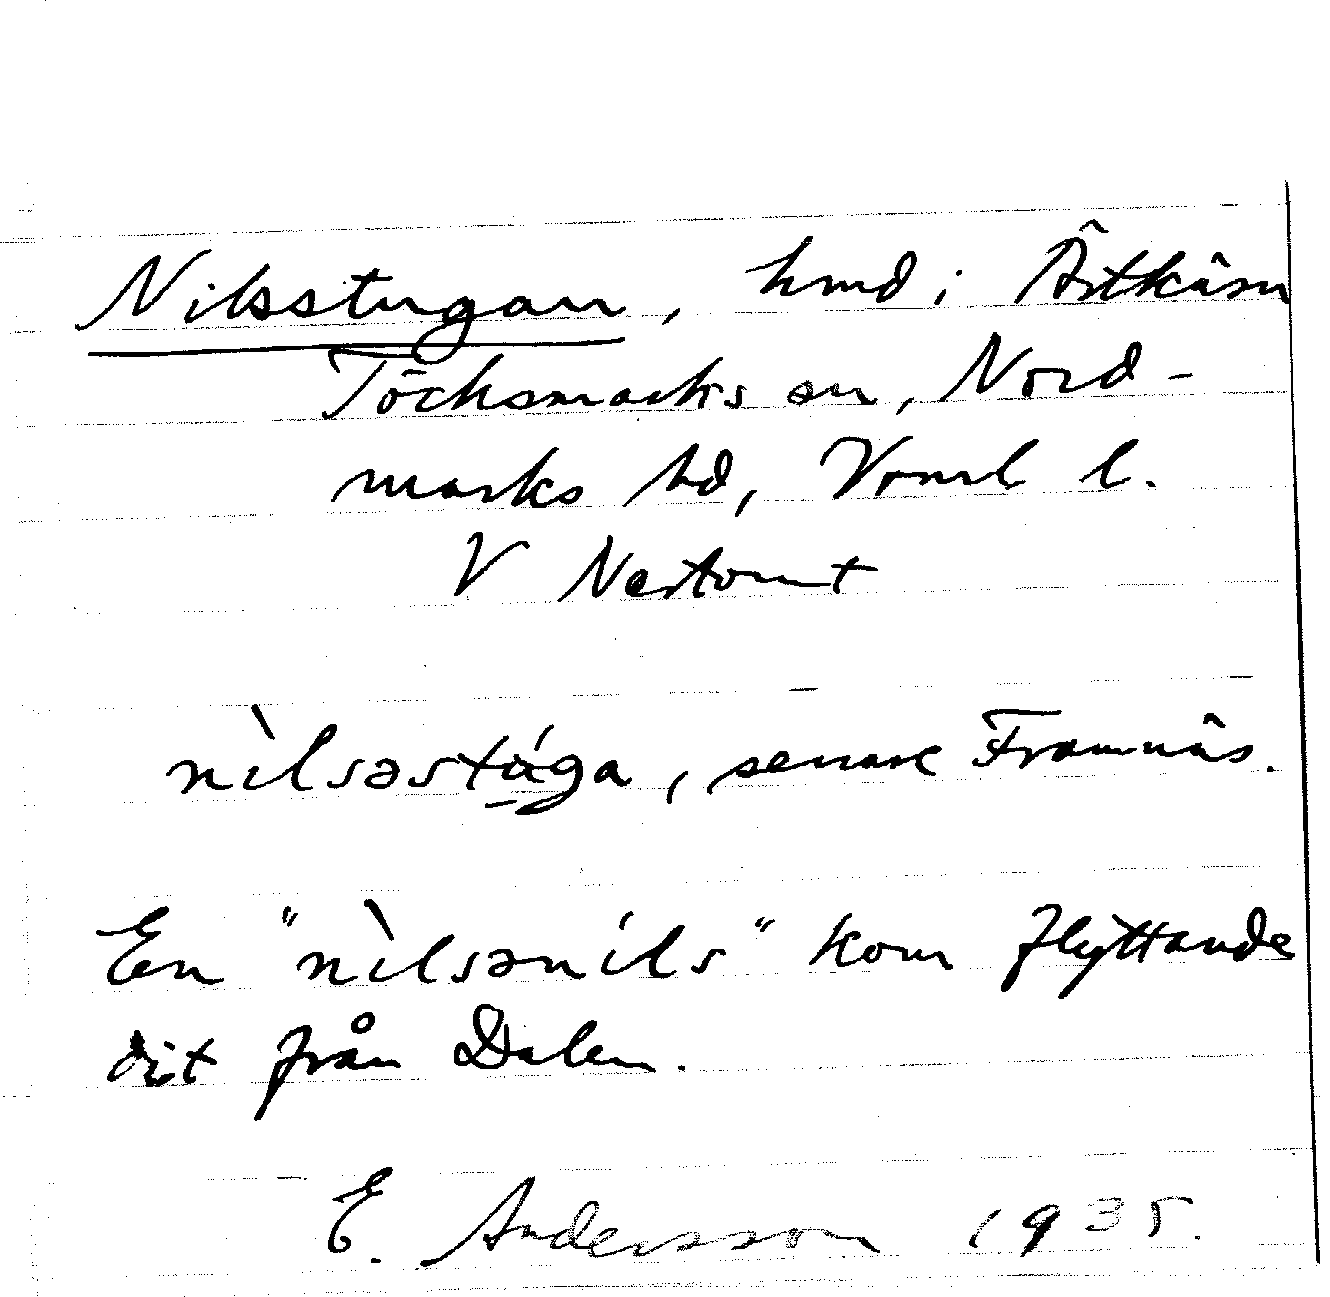 Nilsstugan, hmd i Årtkärn
Töcksmarks sn, Nord-
marks hd, Vrml l.
V Nertomt
nìlsəstúga, senare Framnäs.
En "nìlsəníls" kom flyttande
dit från Dalen.
E. Andersson 1935.